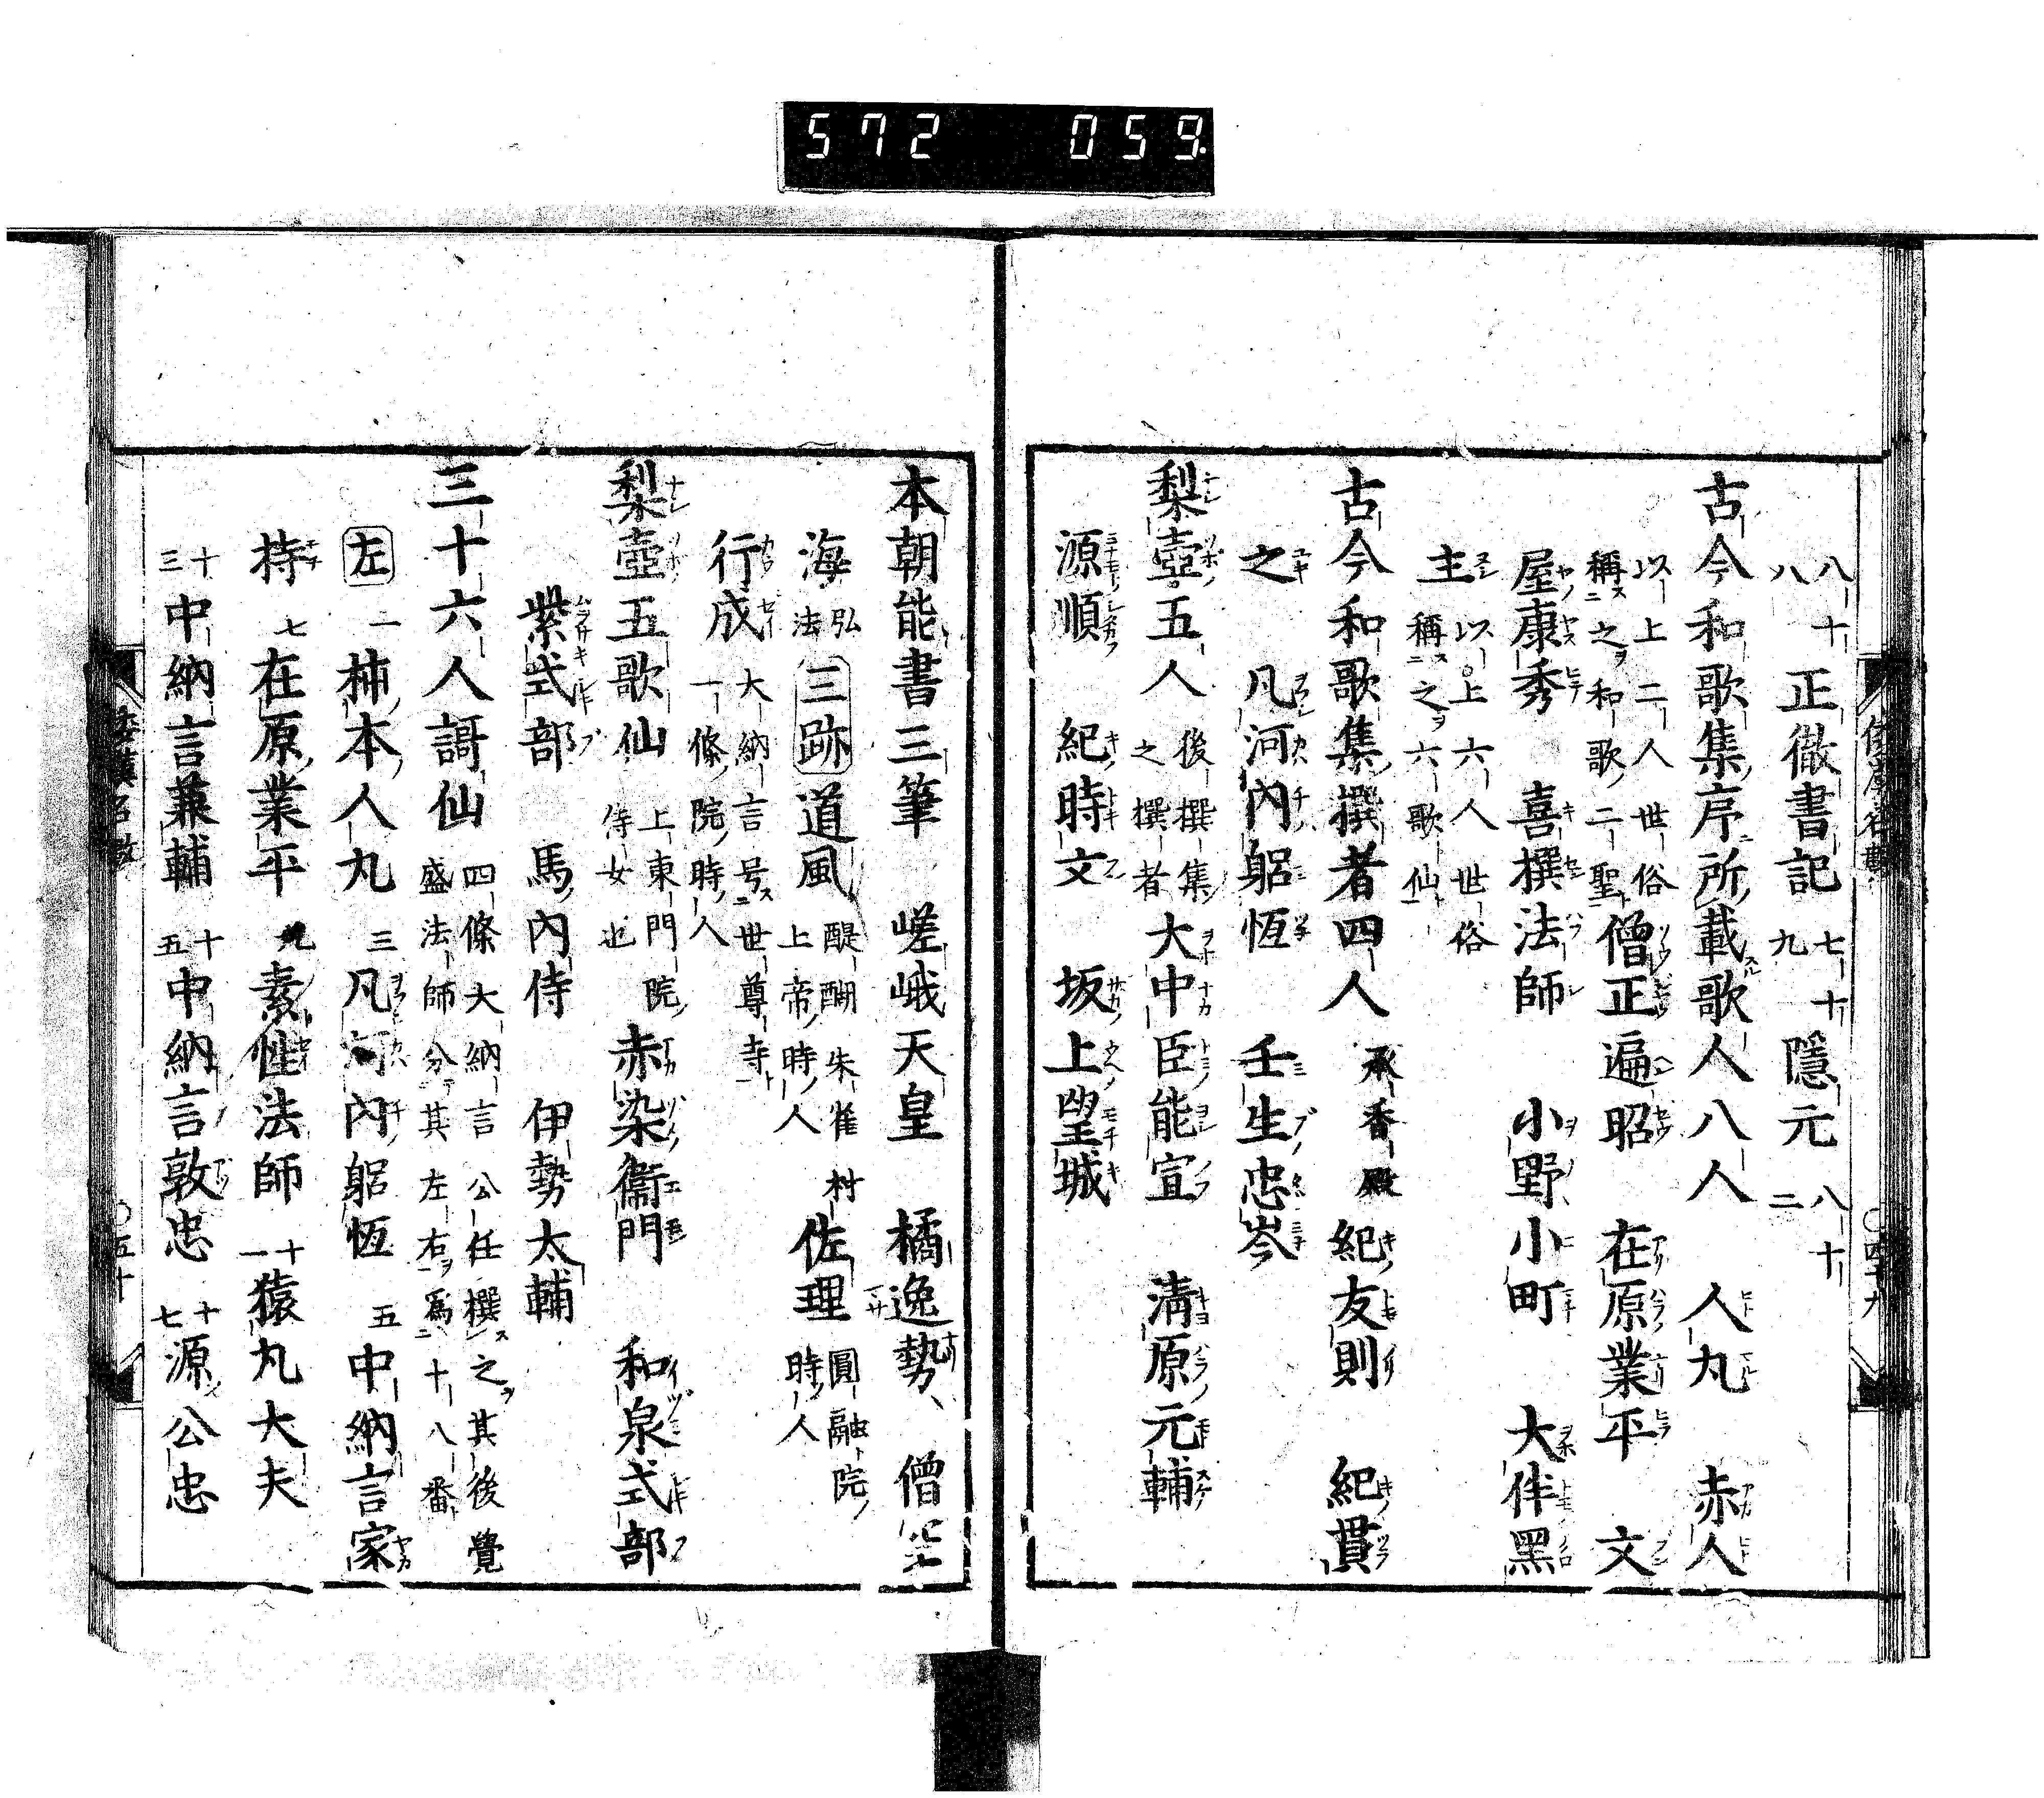 572 059
八十八 正徹書記 七十九 隱元 八十二
古今和歌集序所載歌人八人 人丸 赤人
以上二人世俗稱之和歌二聖 僧正遍昭 在原業平 文
屋康秀 喜撰法師 小野小町 大伴黑
主 以上六人世俗稱之六歌仙
古今和歌集撰者四人 承香殿 紀友則 紀貫
之 凡河內躬恆 壬生忠岑
梨壺五人 後撰集之撰者 大中臣能宣 淸原元輔
源順 紀時文 坂上望城
本朝能書三筆 嵯峨天皇 橘逸勢 僧空
海 弘法 三跡 道風 醍醐朱雀村上帝時人 佐理 圓融院時人
行成 大納言号世尊寺一條院時人
梨壺五歌仙 上東門院侍女也 赤染衞門 和泉式部
紫式部 馬內侍 伊勢太輔
三十六人謌仙 四條大納言公任撰之其後覺盛法師分其左右爲十八番
左 一 柿本人丸 三 凡河內躬恆 五 中納言家
持 七 在原業平 九 素性法師 十一 猿丸大夫
十三 中納言兼輔 十五 中納言敦忠 十七 源公忠
五十